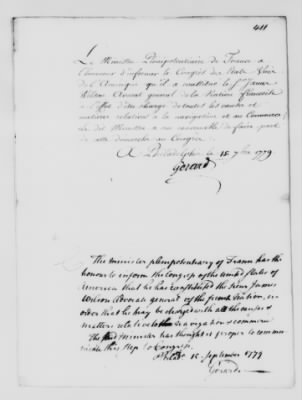 411
Le Ministre Plenipotentiaire de France a
l'honneur d'informer le Congrès des Etats Unis
de l'Amerique qu'il a constitué le Sr. James
Wilson Avocat general de la Nation françoise
à l'effet d'être chargé de toutes les causes et
matieres relatives à la navigation et au Commerce
Le dit Ministre a cru convenable de faire part
de cette demarche au Congrès.
A Philadelphie le 15 7bre 1779
Gerard
The minister plenipotentiary of France has the
honour to inform the Congress of the united States of
America that he has constituted the Sieur James
Wilson Advocate general of the french Nation, in
order that he may be charged with all the causes &
matters relative to the navigation & commerce
The said minister has thought it proper to commu-
nicate this step to Congress.
Philada 15 September 1779
Gerard